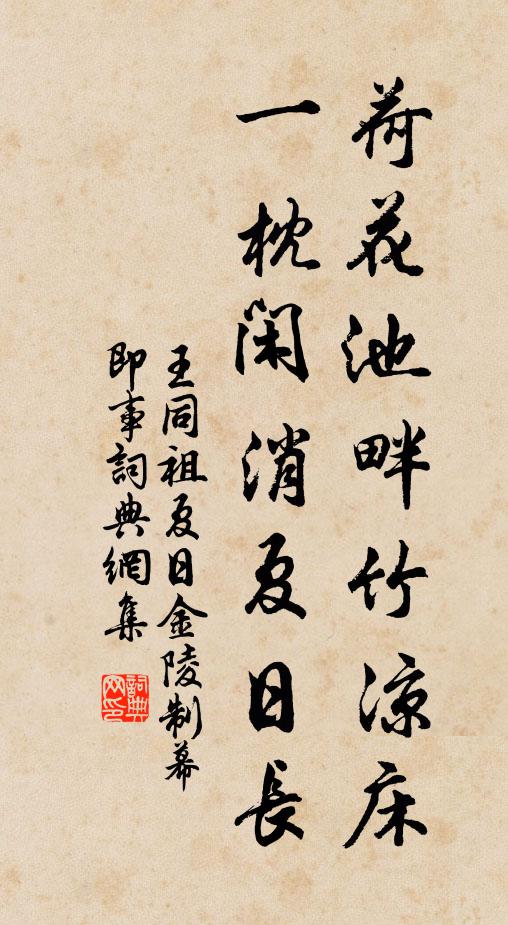 荷花池畔竹凉床
一枕閑消夏日長
王同祖夏日金陵制幕
即事詞典網集
詞典網印